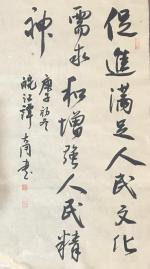 促進滿足人民文化
需求和增強人民精
神
庚子初冬
皖江譚